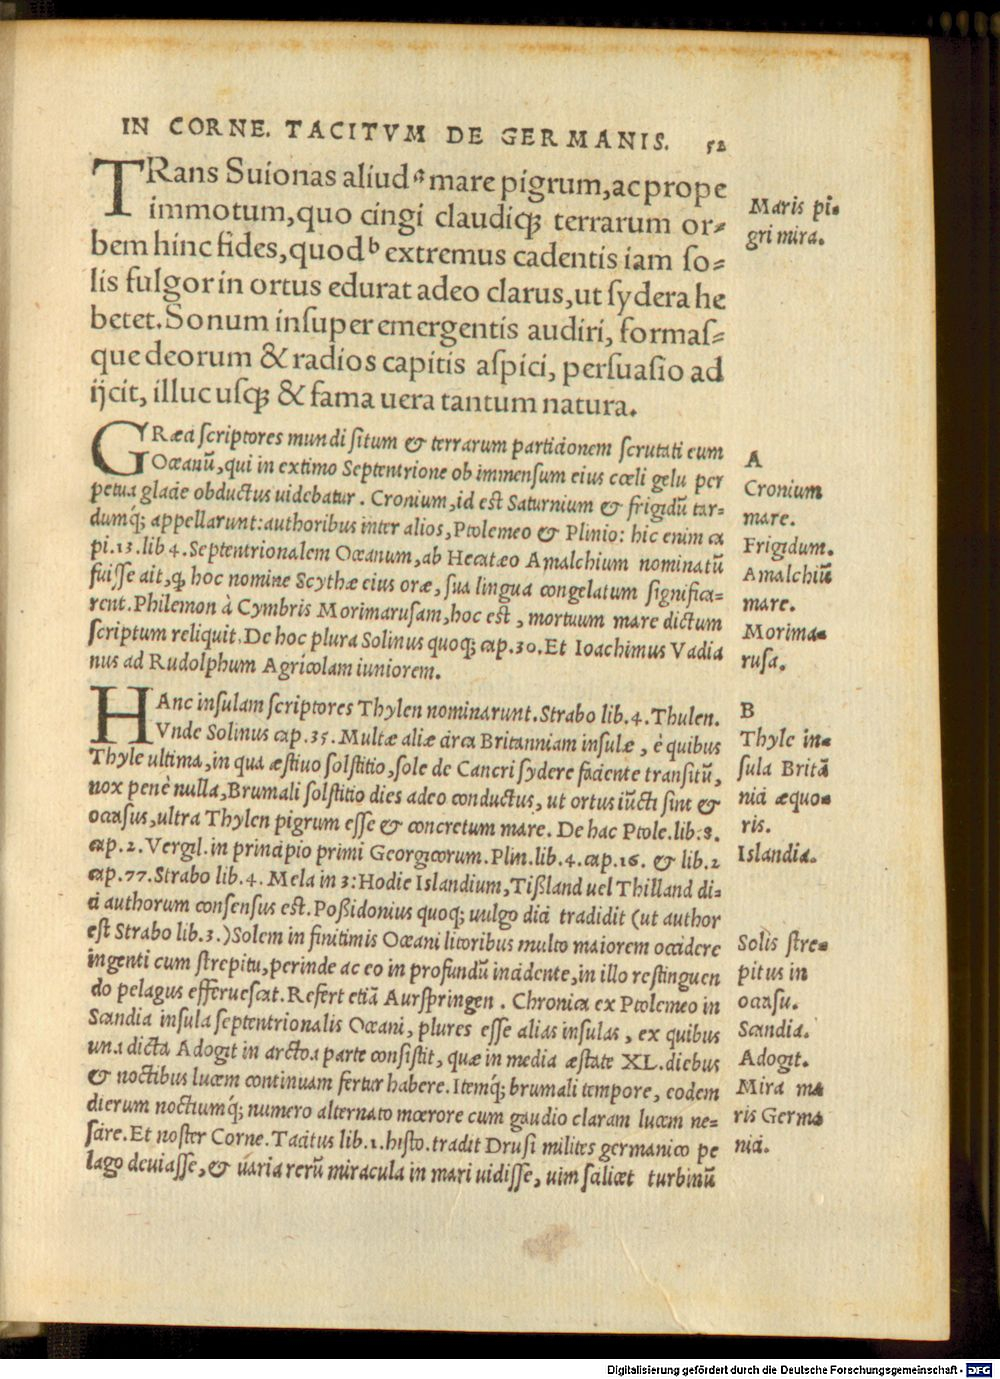 IN CORNE. TACITVM DE GERMANIS. 52
TRans Suionas aliud ª mare pigrum, ac prope
immotum, quo cingi claudiqꝫ terrarum or⸗
bem hinc fides, quod ᵇ extremus cadentis iam ſo⸗
lis fulgor in ortus edurat adeo clarus, ut ſydera he
betet. Sonum inſuper emergentis audiri, formaſ⸗
que deorum & radios capitis aſpici, perſuaſio ad
ijcit, illuc uſqꝫ & fama uera tantum natura.
Maris pi⸗
gri mira.
GRæci ſcriptores mundi ſitum & terrarum particionem ſcrutati eum
Oceanū, qui in extimo Septentrione ob immenſum eius cœli gelu per
petua glacie obductus uidebatur. Cronium, id eſt Saturnium & frigidū tar⸗
dumqꝫ appellarunt: authoribus inter alios, Ptolemeo & Plinio: hic enim ca
pi. 13. lib 4. Septentrionalem Oceanum, ab Hecatæo Amalchium nominatū
fuiſſe ait, ꝙ hoc nomine Scythæ eius oræ, ſua lingua congelatum ſignifica⸗
rent. Philemon à Cymbris Morimaruſam, hoc eſt, mortuum mare dictum
ſcriptum reliquit. De hoc plura Solinus quoqꝫ cap. 30. Et Ioachimus Vadia
nus ad Rudolphum Agricolam iuniorem.
A
Cronium
mare.
Frigidum.
Amalchiū
mare.
Morima⸗
ruſa.
HAnc inſulam ſcriptores Thylen nominarunt. Strabo lib. 4. Thulen.
Vnde Solinus cap. 35. Multæ aliæ circa Britanniam inſulæ, è quibus
Thyle ultima, in qua æſtiuo ſolſtitio, ſole de Cancri ſydere faciente tranſitū,
nox penè nulla, Brumali ſolſtitio dies adeo conductus, ut ortus iūcti ſint &
occaſus, ultra Thylen pigrum eſſe & concretum mare. De hac Ptole. lib: 8.
cap. 2. Vergil. in principio primi Georgicorum. Plin. lib. 4. cap. 16. & lib. 2
cap. 77. Strabo lib. 4. Mela in 3: Hodie Islandium, Tißland uel Thilland di⸗
ci authorum conſenſus eſt. Poßidonius quoqꝫ uulgo dici tradidit (ut author
eſt Strabo lib. 3.) Solem in finitimis Oceani litoribus multo maiorem occidere
ingenti cum ſtrepitu, perinde ac eo in profundū incidente, in illo reſtinguen
do pelagus efferueſcat. Refert etiā Aurſpringen. Chronica ex Ptolemeo in
Scandia inſula ſeptentrionalis Oceani, plures eſſe alias inſulas, ex quibus
una dicta Adogit in arctoa parte conſiſtit, quæ in media æſtate XL. diebus
& noctibus lucem continuam fertur habere. Itemqꝫ brumali tempore, eodem
dierum noctiumqꝫ numero alternato mœrore cum gaudio claram lucem ne⸗
ſcire. Et noſter Corne. Tacitus lib. 1. hiſto. tradit Druſi milites germanico pe
lago deuiaſſe, & uaria rerū miracula in mari uidiſſe, uim ſcilicet turbinū
B
Thyle in⸗
ſula Britā
nici æquo⸗
ris.
Islandia.
Solis ſtre⸗
pitus in
occaſu.
Scandia.
Adogit.
Mira ma
ris Germa
nici.
Digitalisierung gefördert durch die Deutsche Forschungsgemeinschaft - DFG